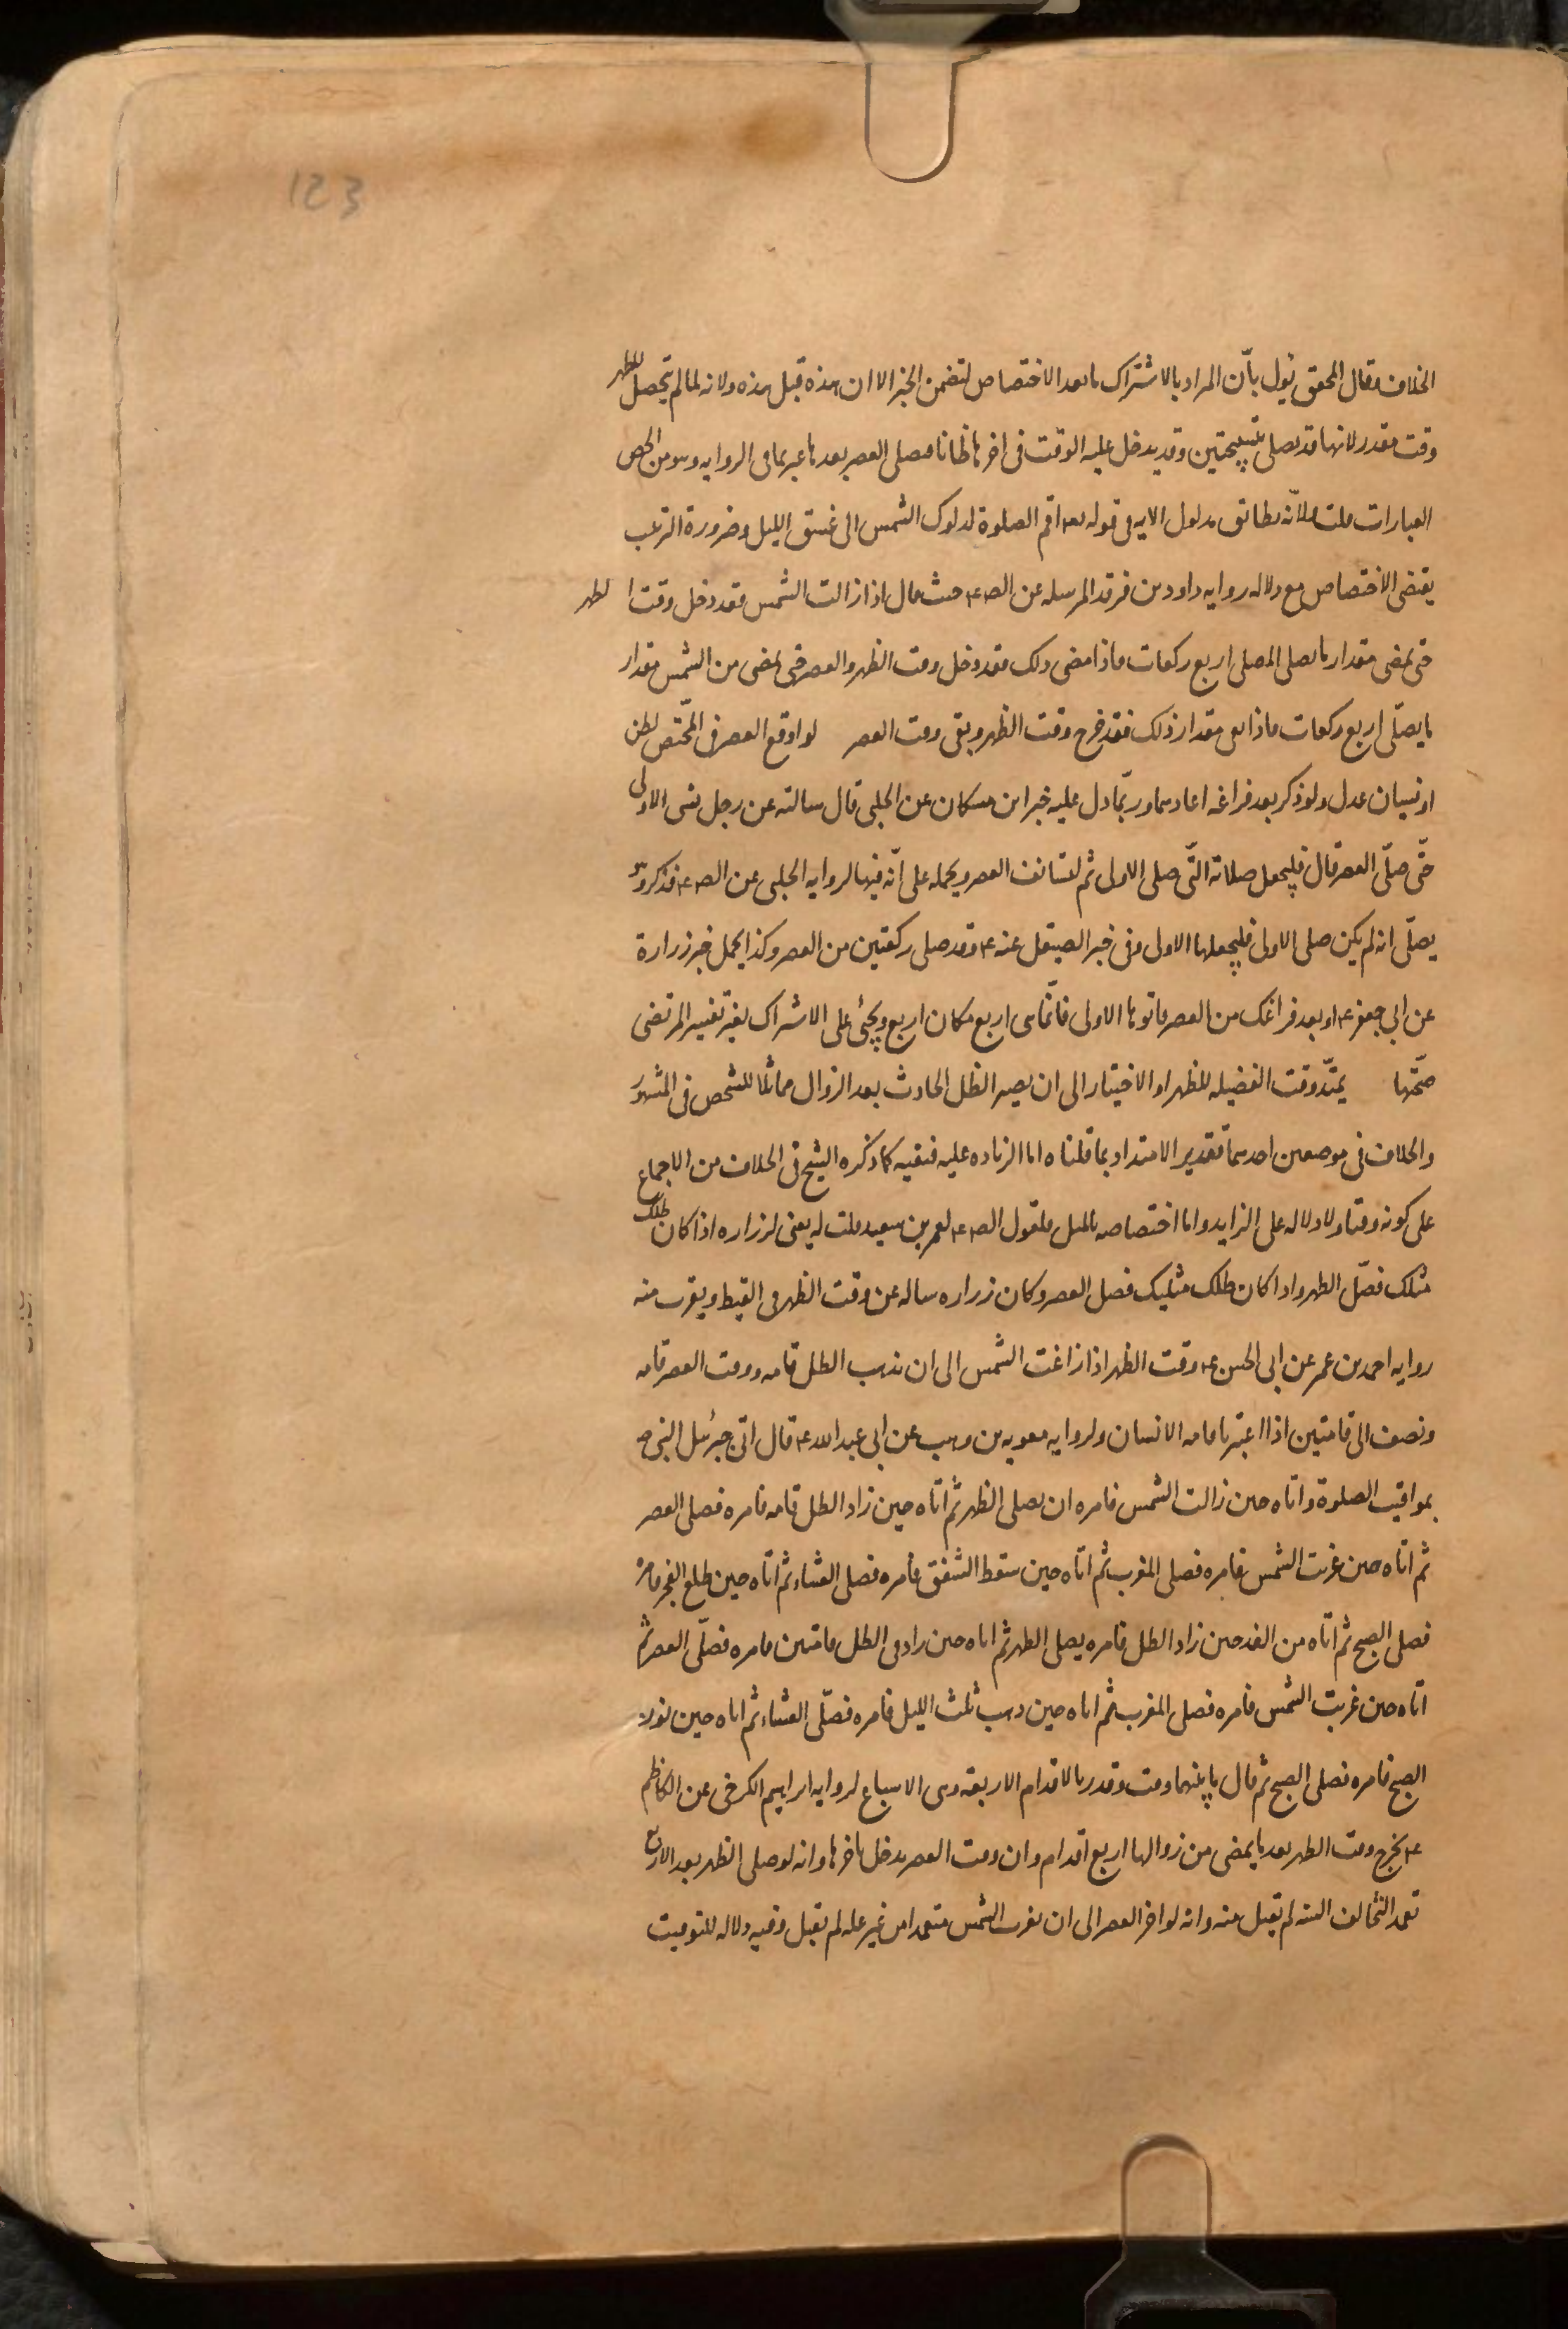 123
الخلاف فقال المحقق نول بأن المراد بالاشتراك ما بعد الاختصاص لتضمن الخبر الا ان هذه قبل هذه ولانه لما لم يتحصل للظهر
وقت مقدر لانها قد تصلى بتسبيحتين وقد يدخل عليه الوقت فى اخرها ظانا فصلى العصر بعدها عبر بما فى الروايه وهو من الخص
العبارات قلت ولانه يطابق مدلول الايه فى قوله تعـ اقم الصلوة لدلوك الشمس الى غسق الليل وضرورة الترتيب
يقتضى الاختصاص مع دلاله روايه داود بن فرقد المرسله عن الصـ ع حيث قال اذا زالت الشمس فقد دخل وقت الظهر
حتى يمضى مقدار ما يصلى المصلى اربع ركعات فاذا مضى ذلك فقد دخل وقت الظهر والعصر حتى يمضى من الشمس مقدار
ما يصلّى اربع ركعات فاذا بقى مقدار ذلك فقد خرج وقت الظهر وبقى وقت العصر لو اوقع العصر فى المختص لظن
او نسيان عدل ولو ذكر بعد فراغه اعادهما وربّما دل عليه خبر ابن مسكان عن الحلبى قال سالته عن رجل نسى الاولى
حتّى صلّى العصر قال فليجعل صلاته التّى صلى الاولى ثم ليستانف العصر ويحمله على انّه فيها لروايه الحلبى عن الصـ ع فذكر وهو
يصلّى انه لم يكن صلى الاولى فليجعلها الاولى وفى خبر الصيقل عنه ع وقد صلى ركعتين من العصر وكذا يحمل خبر زرارة
عن ابى جعفر ع او بعد فراغك من العصر فانوها الاولى فانّما هى اربع مكان اربع ويجئ على الاشتراك بغير تفسير المرتضى
صحّتها يمتدّ وقت الفضيله للظهر او الاختيار الى ان يصير الظل الحادث بعد الزوال مماثلا للشخص فى المشهور
والخلاف فى موضعين احدهما تقدير الامتداد بما قلناه اما الزياده عليه فنفيه كما ذكره الشيخ فى الخلاف من الاجماع
على كونه وقتا ولا دلاله على الزايد واما اختصاصه بالمثل فلقول الصـ ع لعمر بن سعيد قلت له يعنى لزراره اذا كان ظلك
مثلك فصّل الظهر واذا كان ظلك مثليك فصل العصر وكان زراره ساله عن وقت الظهر فى القيظ ويقرب منه
روايه احمد بن عمر عن ابى الحسن ع وقت الظهر اذا زاغت الشمس الى ان يذهب الظل قامه ووقت العصر قامه
ونصف الى قامتين اذا اعتبرنا قامه الانسان ولروايه معويه بن وهب عن ابى عبد الله ع قال اتى جبرئيل النبى ص
بمواقيت الصلوة واتاه حين زالت الشمس فامره ان يصلى الظهر ثم اتاه حين زاد الظل قامه فامره فصلى العصر
ثم اتاه حين غربت الشمس فامره فصلى المغرب ثم اتاه حين سقط الشفق فامره فصلى العشاء ثم اتاه حين طلع الفجر فامره
فصلى الصبح ثم اتاه من الغد حين زاد الظل فامره يصلى الظهر ثم اتاه حين زاد فى الظل قامتين فامره فصلّى العصر ثم
اتاه حين غربت الشمس فامره فصلى المغرب ثم اتاه حين ذهب ثلث الليل فامره فصلّى العشاء ثم اتاه حين نور
الصبح فامره فصلى الصبح ثم قال ما بينهما وقت وقدر بالاقدام الاربعة وهى الاسباع لروايه ابراهيم الكرخى عن الكاظم
ع يخرج وقت الظهر بعد ما يمضى من زوالها اربع اقدام وان وقت العصر يدخل باخرها وانه لو صلى الظهر بعد الاربع
تعمد التخالف السنه لم تقبل منه وانه لو اخر العصر الى ان تغرب الشمس متعمدا من غير عله لم تقبل وفيه دلاله للتوقيت